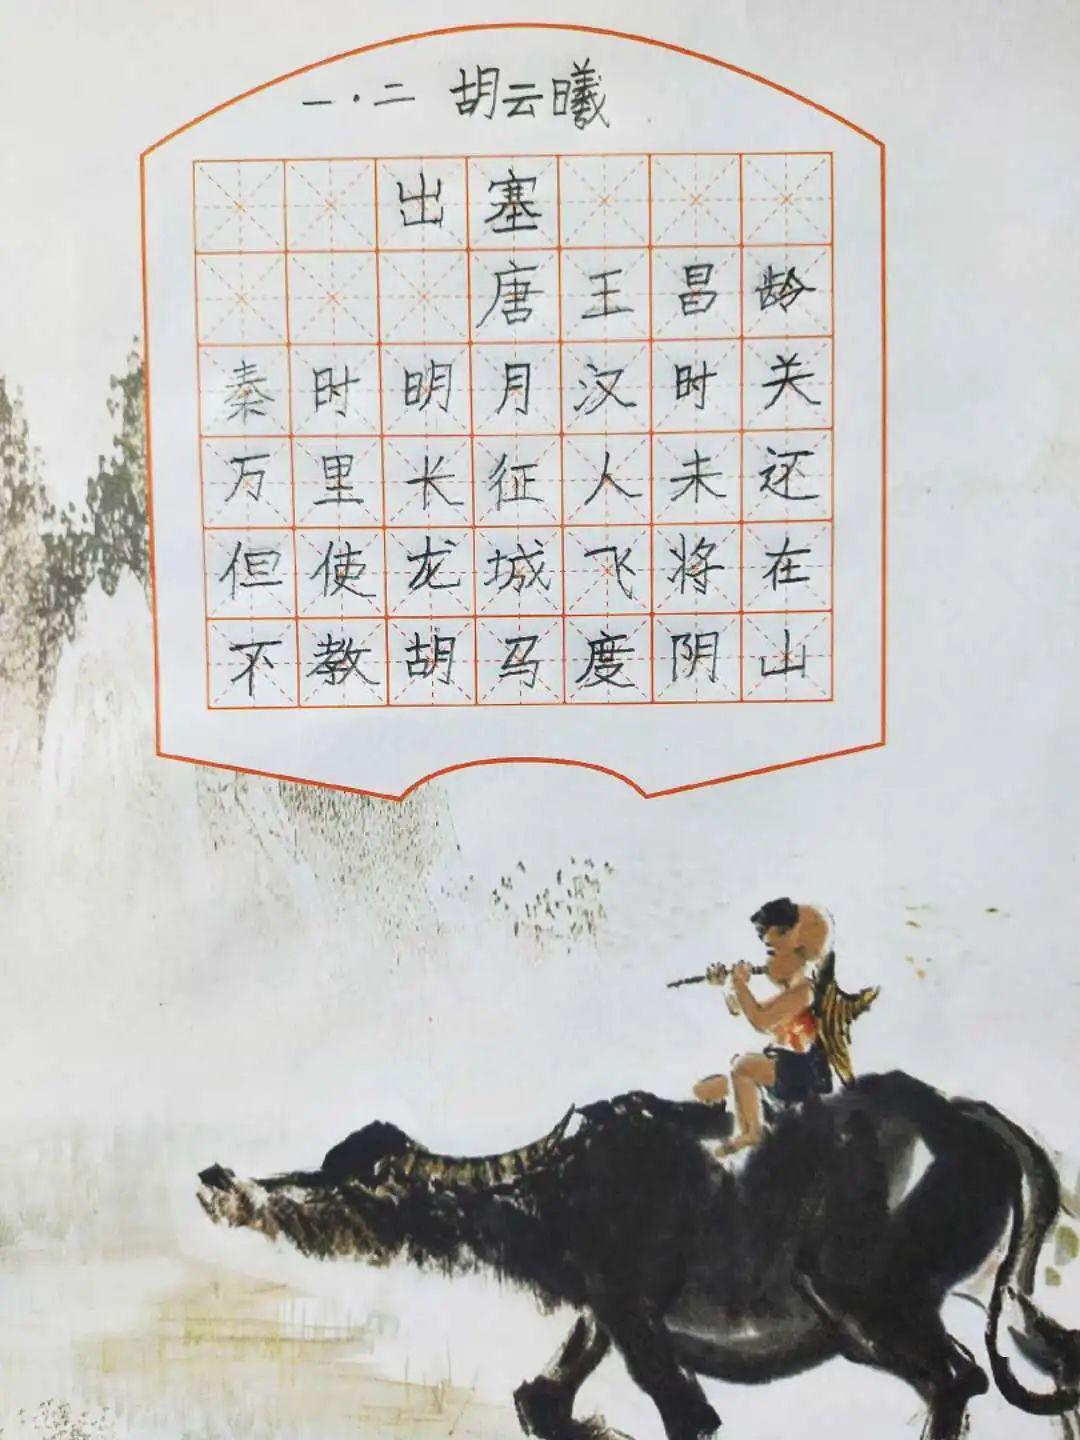 一·二 胡云曦
出塞
唐王昌龄
秦时明月汉时关
万里长征人未还
但使龙城飞将在
不教胡马度阴山